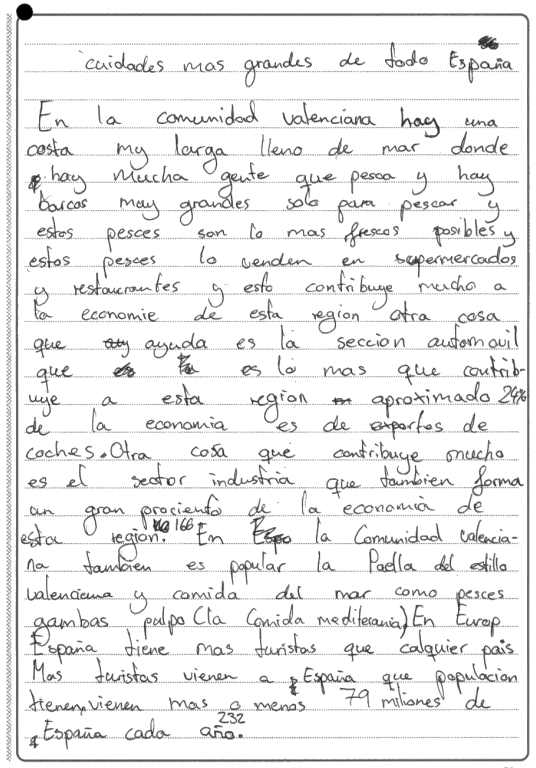 cuidades mas grandes de todo España
En la comunidad valenciana hay una
costa my larga lleno de mar donde
hay mucha gente que pesca y hay
barcos muy grandes solo para pescar y
estos pesces son lo mas frescos posibles y
estos pesces lo venden en supermercados
y restaurantes y esto contribuye mucho a
la economie de esta region otra cosa
que ayuda es la seccion automovil
que es lo mas que contrib-
uye a esta region aproximado 24%
de la economia es de exportes de
coches. Otra cosa que contribuye mucho
es el sector industria que tambien forma
un gran prociento de la economia de
esta region. 166 En la Comunidad valencia-
na tambien es popular la Paella del estillo
valenciana y comida del mar como pesces
gambas pulpo (la Comida mediterania) En Europ
España tiene mas turistas que calquier pais
Mas turistas vienen a España que populacion
tienen, vienen mas o menos 79 miliones de
España cada año. 232